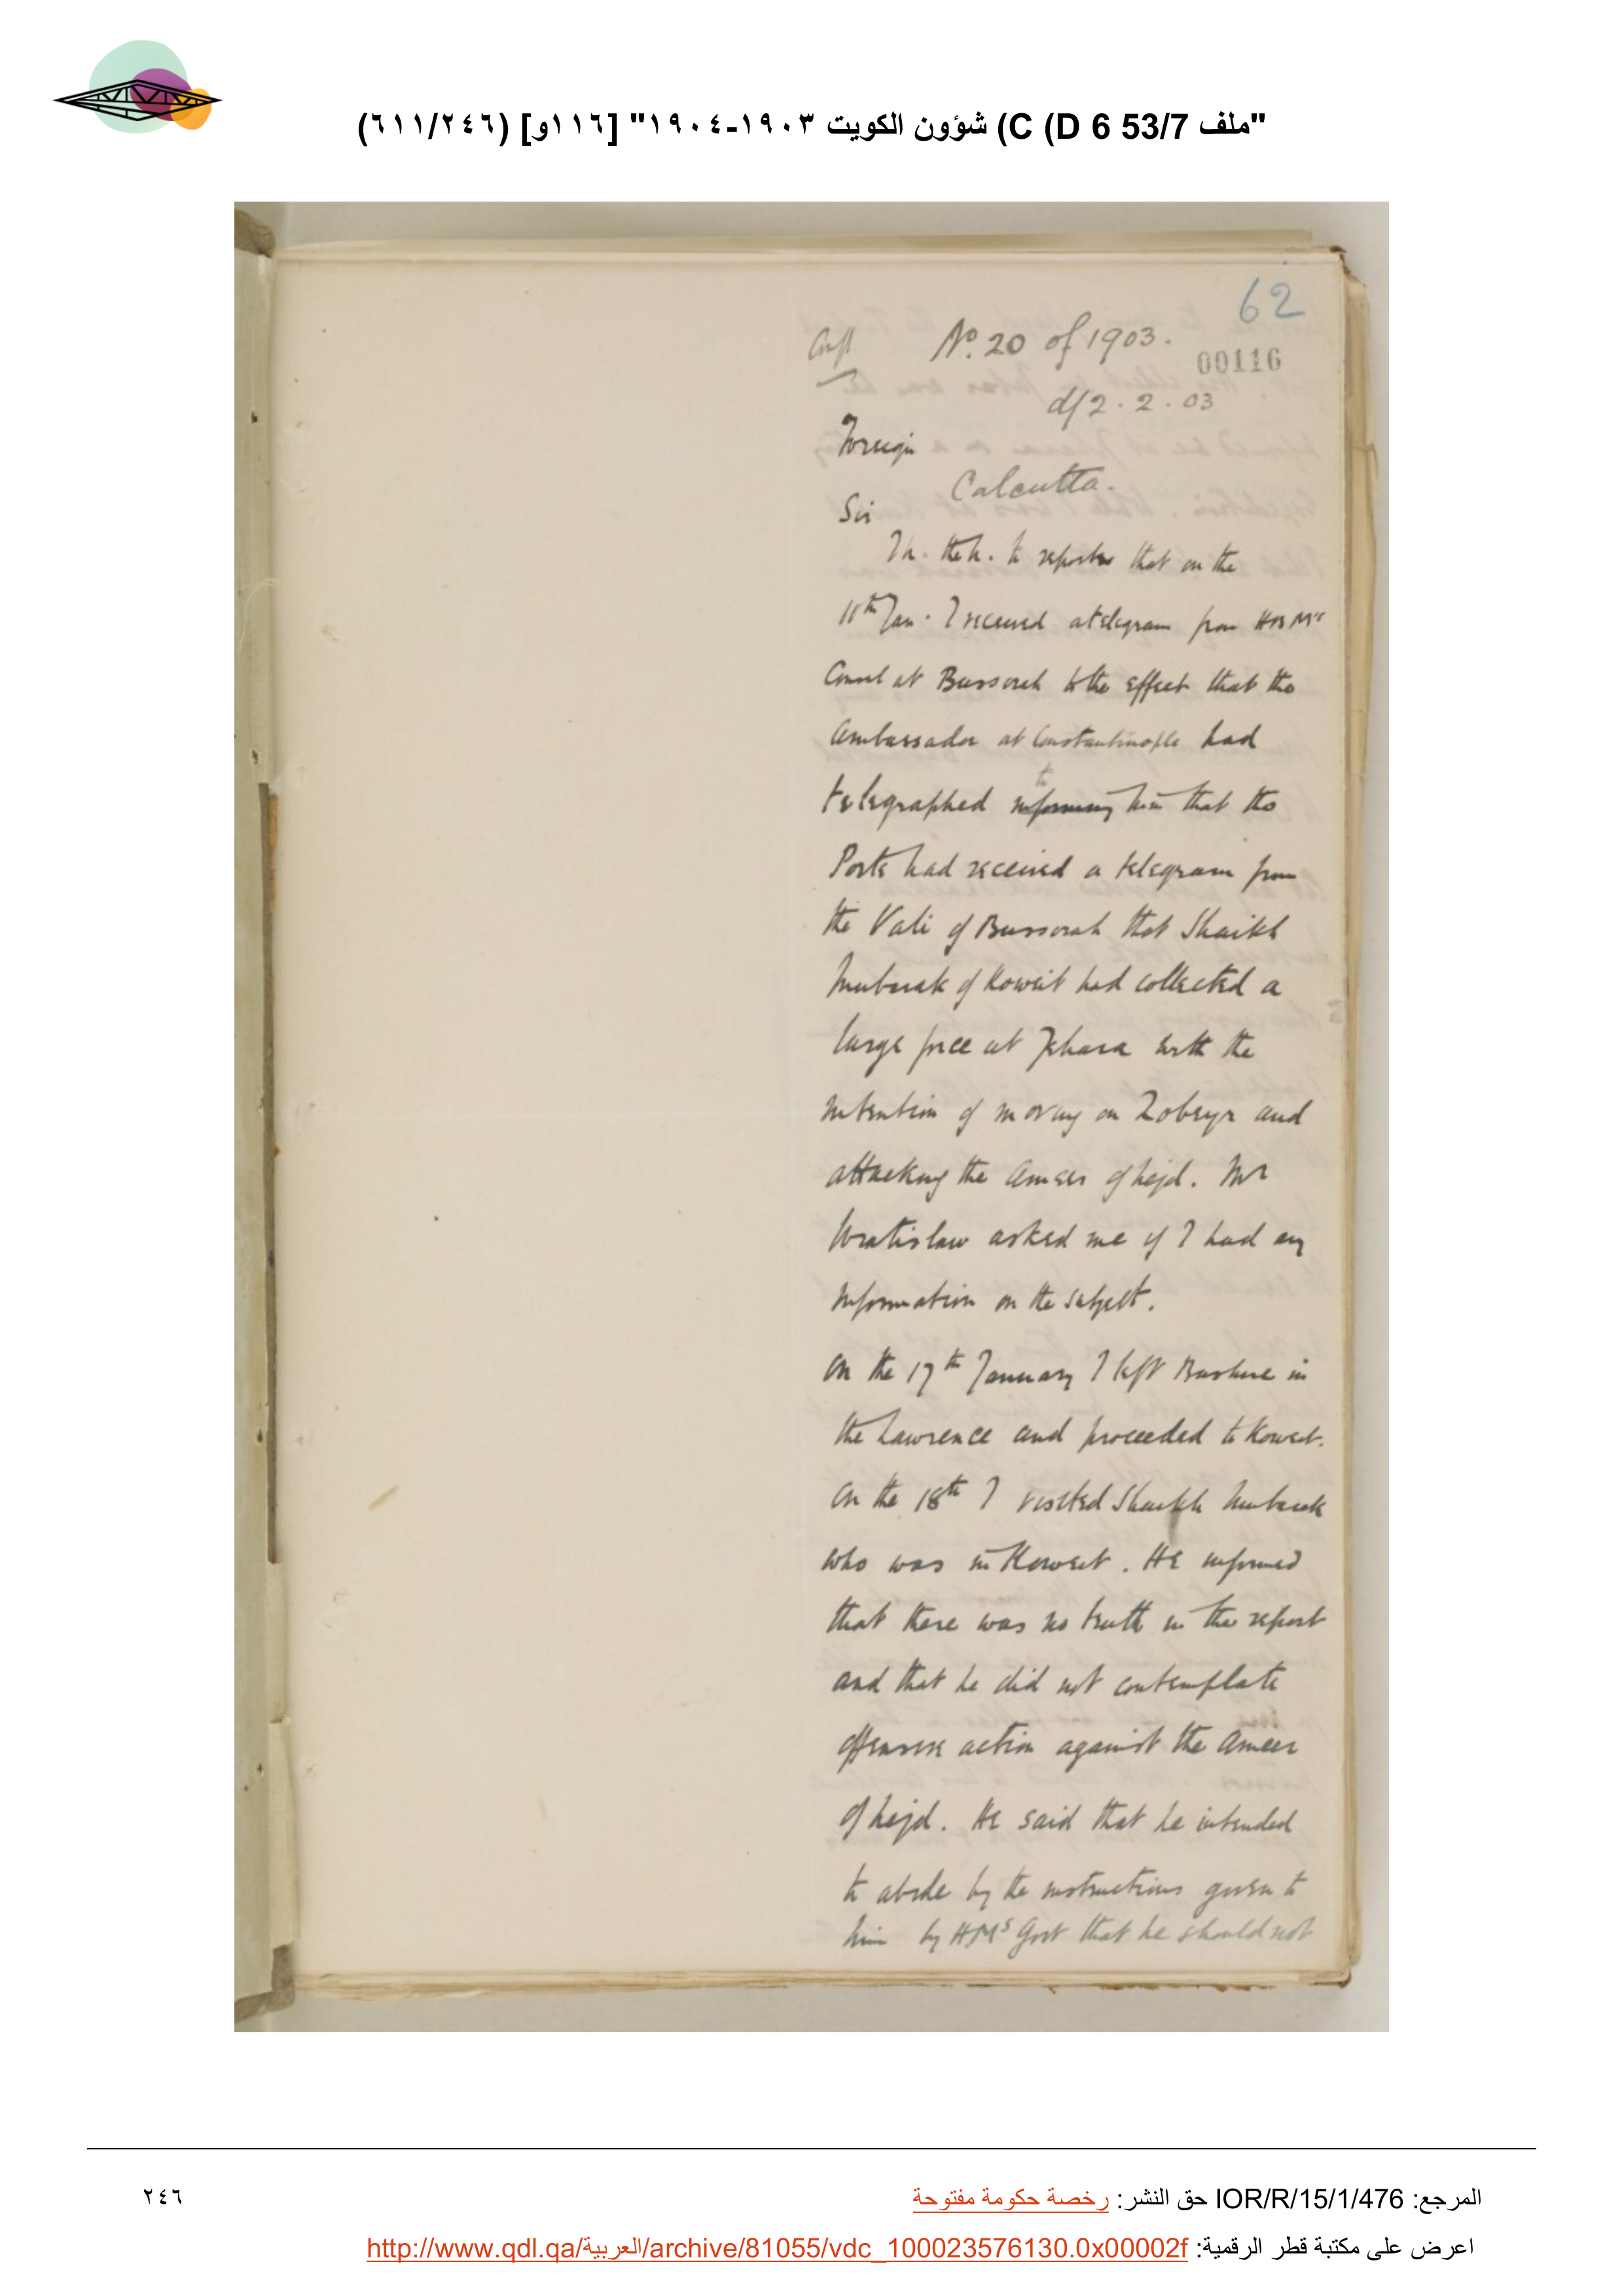 "ملف 53/7 C (D 6) شؤون الكويت ١٩٠٣-١٩٠٤" [١١٦و] (٢٤٦/٦١١)
62
Conf
No. 20 of 1903.
00116
d/ 2. 2. 03
Foreign
Calcutta.
Sir
I h. the h. to report that on the
11th Jan. I received a telegram from HBM's
Consul at Bussorah to the effect that the
Ambassador at Constantinople had
to
telegraphed informing him that the
Porte had received a telegram from
the Vali of Bussorah that Shaikh
Mubarak of Koweit had collected a
large force at Jehara with the
intention of moving on Zobeyr and
attacking the Ameer of Nejd. Mr
Wratislaw asked me if I had any
information on the subject.
On the 17th January I left Bushire in
the Lawrence and proceeded to Koweit.
On the 18th I visited Shaikh Mubarak
who was in Koweit. He informed
that there was no truth in the report
and that he did not contemplate
offensive action against the Ameer
of Nejd. He said that he intended
to abide by the instructions given to
him by HM's Govt that he should not
المرجع: IOR/R/15/1/476 حق النشر: رخصة حكومة مفتوحة
٢٤٦
اعرض على مكتبة قطر الرقمية: http://www.qdl.qa/العربية/archive/81055/vdc_100023576130.0x00002f